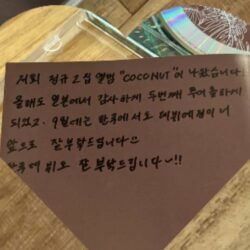 저희 정규 2집 앨범 "COCONUT"이 나왔습니다
올해도 일본에서 감사하게 두번째 투어를 하게
되었고, 9월에는 한국에서도 데뷔예정이니
앞으로 잘부탁드립니다
한국데뷔도 잘 부탁드립니다~!!